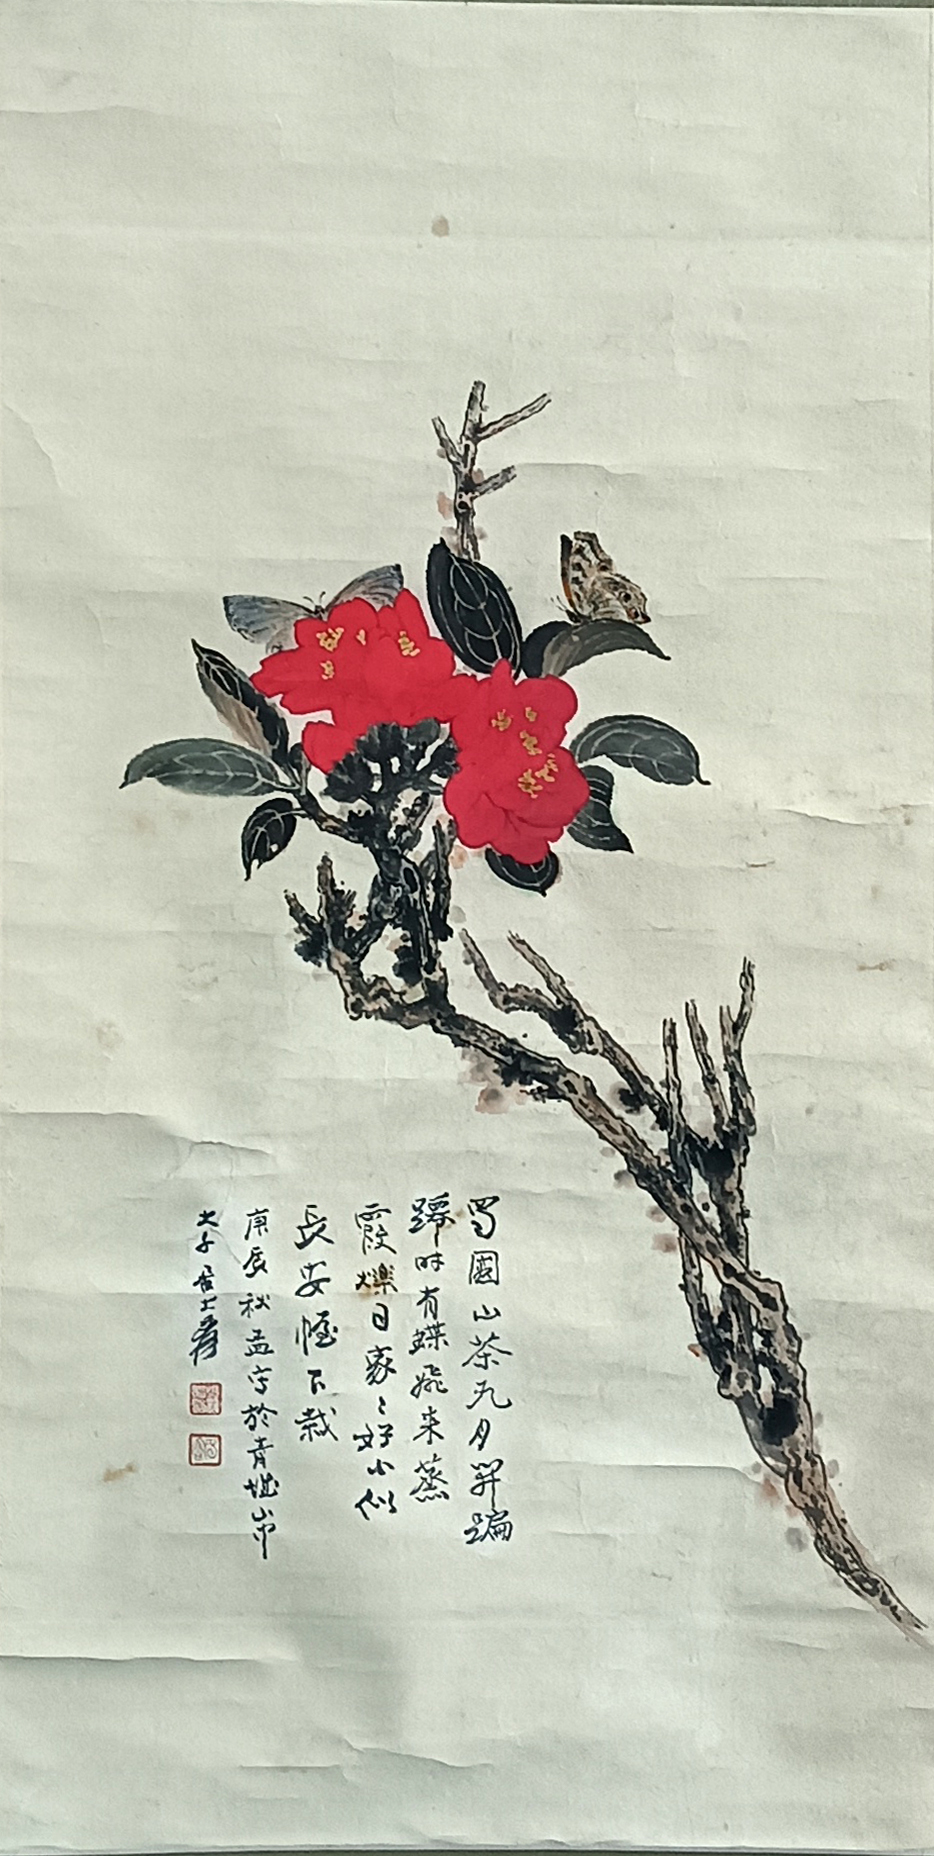 蜀國山茶九月開蹁
躚時有蝶飛来蒸
霞爍日家〻好不似
長安幄下栽
庚辰秋孟写於青城山中
大千居士爰